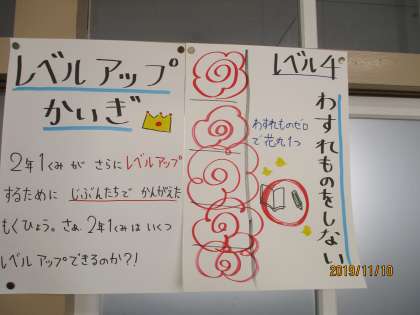 レベルアップ
かいぎ
2年1くみ が さらに レベルアップ
するために じぶんたちで かんがえた
もくひょう。さぁ、2年1くみは いくつ
レベルアップできるのか?!
レベル4
わすれものをしない
わすれものゼロ
で花丸1つ
2019/11/10